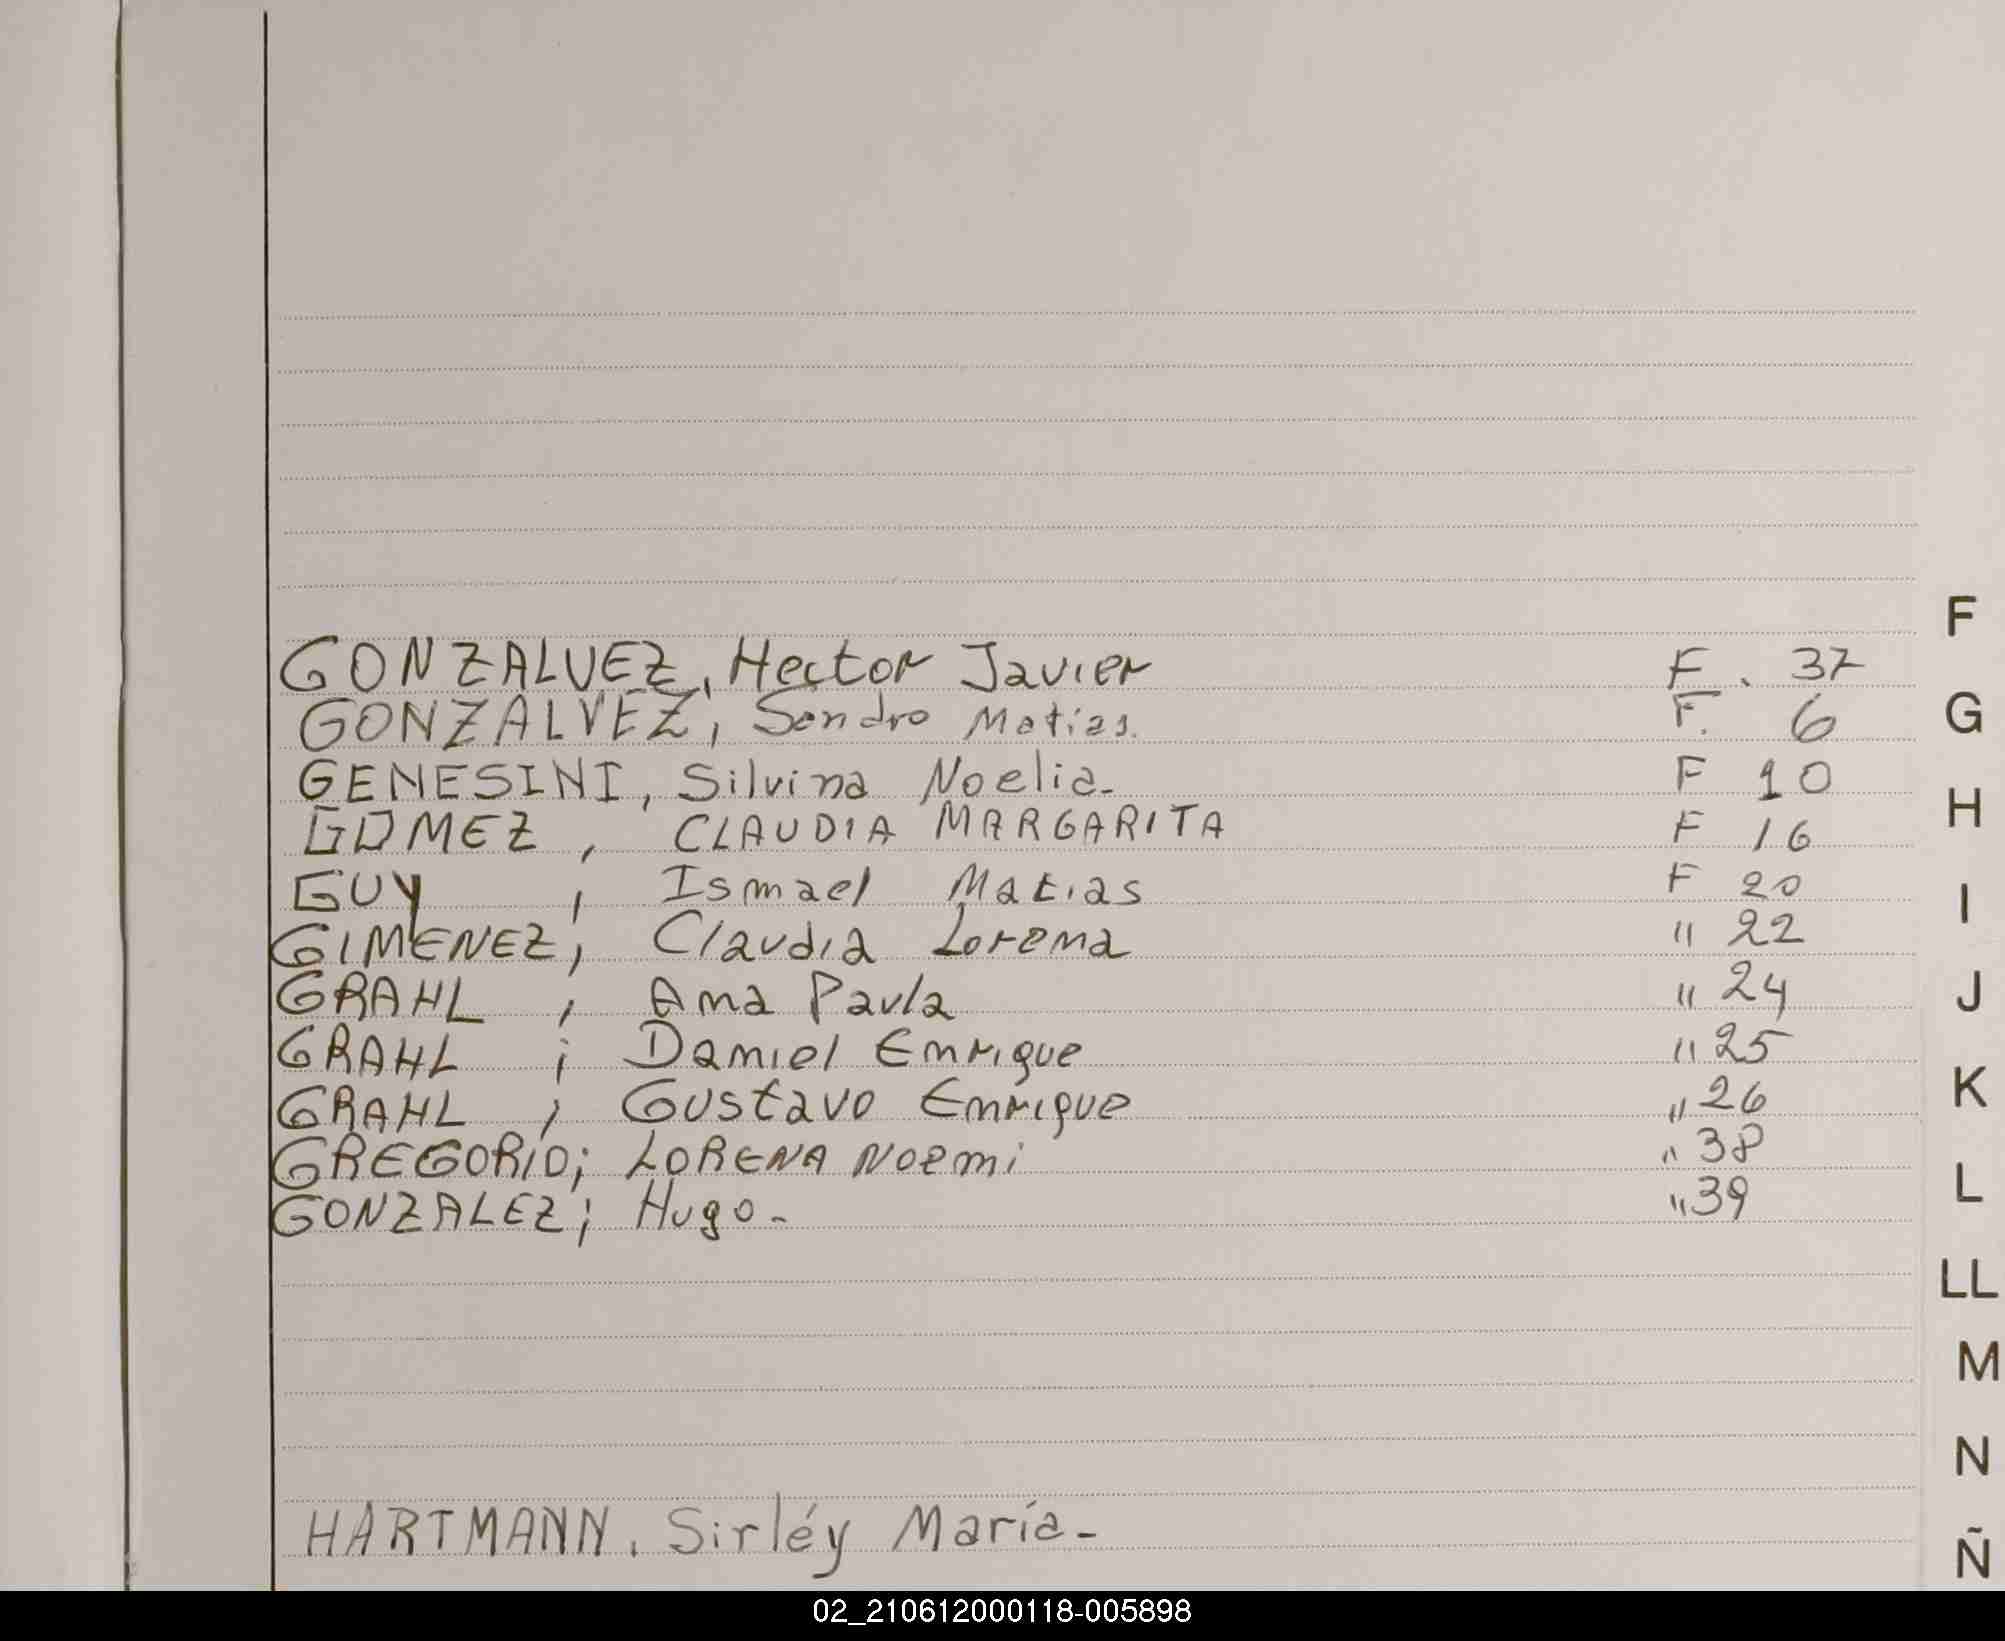 GONZALVEZ, Hector Javier F. 37
F
GONZALVEZ, Sandro Matias. F. 6
G
GENESINI, Silvina Noelia- F 10
H
GOMEZ, CLAUDIA MARGARITA F 16
GUY, Ismael Matias F 20
I
GIMENEZ, Claudia Lorena " 22
GRAHL, Ana Paula " 24
J
GRAHL; Daniel Enrique " 25
K
GRAHL, Gustavo Enrique " 26
GREGORIO; LORENA Noemi " 38
L
GONZALEZ; Hugo- " 39
LL
M
N
HARTMANN, Sirléy María-
Ñ
02_210612000118-005898